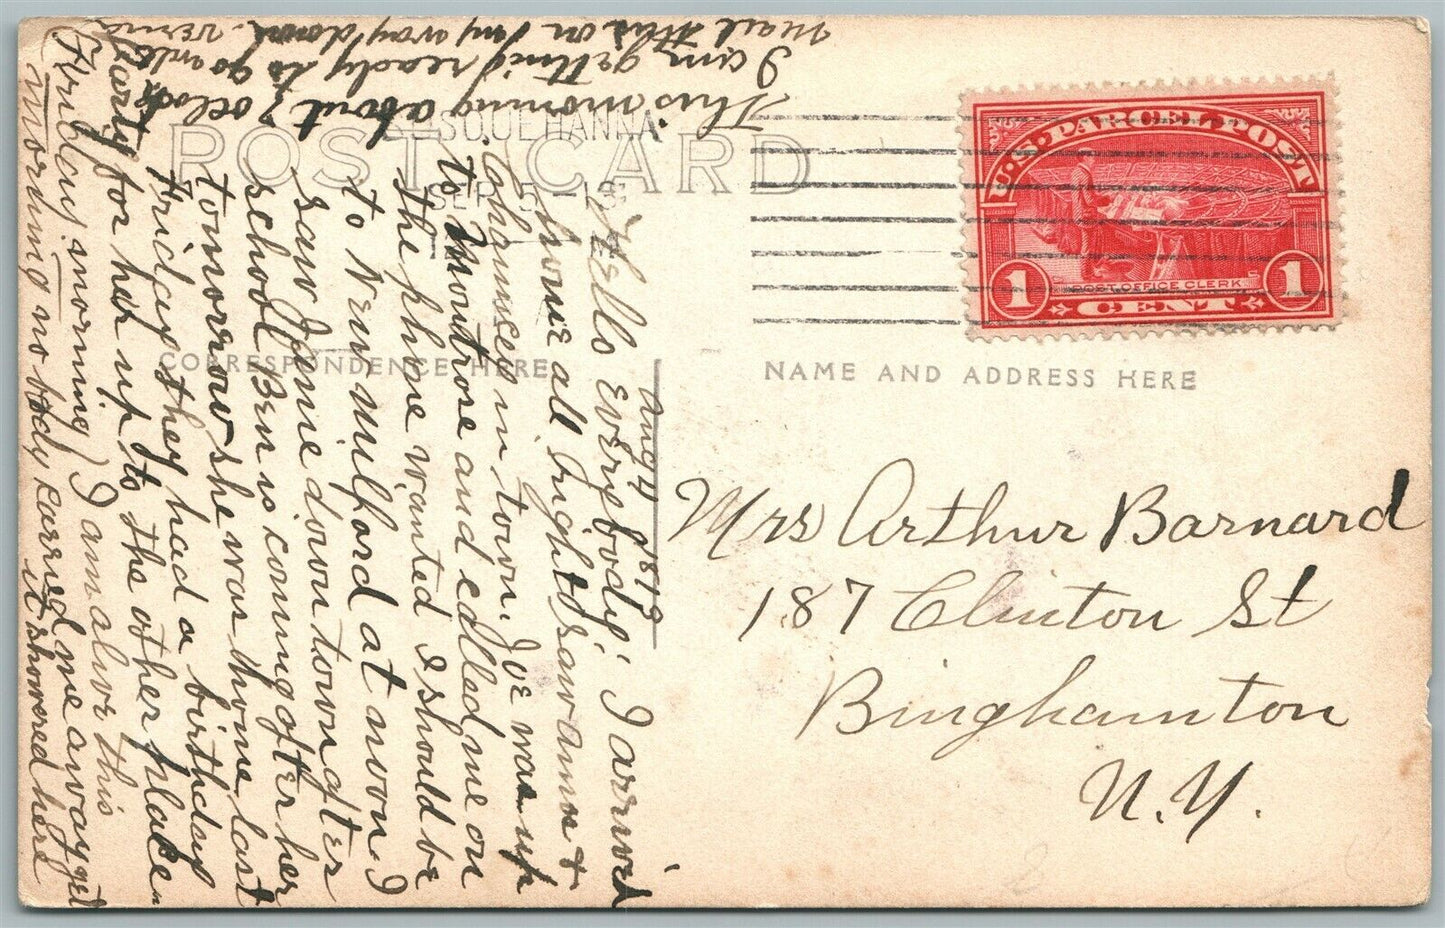 POST CARD
SUSQUEHANNA
SEP 5 - 13
U.S. PARCEL POST
POST OFFICE CLERK
1 CENT 1
CORRESPONDENCE HERE
NAME AND ADDRESS HERE
Mrs Arthur Barnard
187 Clinton St
Binghamton
N.Y.
1913
Hello Everybody! I arrived
home all right saw
in town. was up
to Montrose and called me on
the phone wanted I should be
to New Milford at noon. I
saw Jennie down town after
school Ben is coming after her
tomorrow she was home last
Friday they had a birthday
party for her up to the other place.
(Friday morning) I am alve this
morning no body carried me away yet
it showered here
this morning about 7 oclock
I am getting ready to go
mail this on my way down.